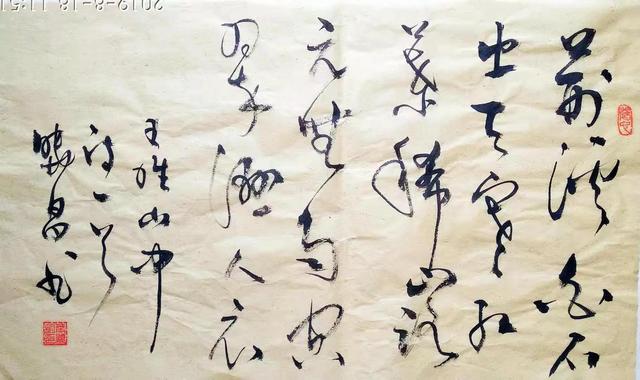 荆溪白石
出天寒红
叶稀山路
元無雨空
翠湿人衣
王维山中
诗一首
昌书
2019-8-18 11:51